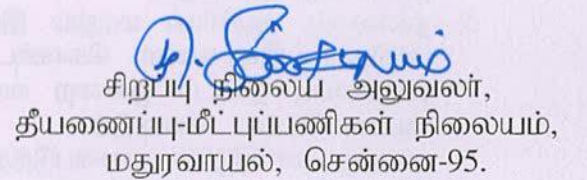 சிறப்பு நிலைய அலுவலர்,
தீயணைப்பு-மீட்புப்பணிகள் நிலையம்,
மதுரவாயல், சென்னை-95.